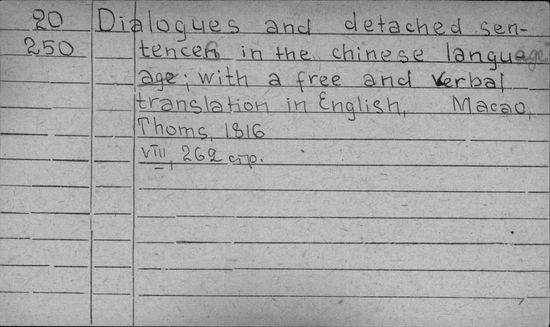 20 Dialogues and detached sen-
250 tences in the chinese language
age; with a free and verbal
translation in English, Macao,
Thoms, 1816
VIII, 262 стр.